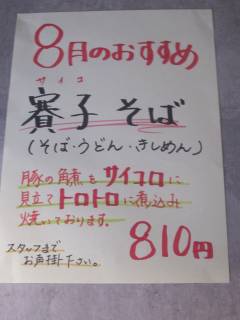 8月のおすすめ
サイコ
賽子そば
(そば・うどん・きしめん)
豚の角煮をサイコロに
見立てトロトロに煮込み
焼いております。
810円
スタッフまで
お声掛下さい。